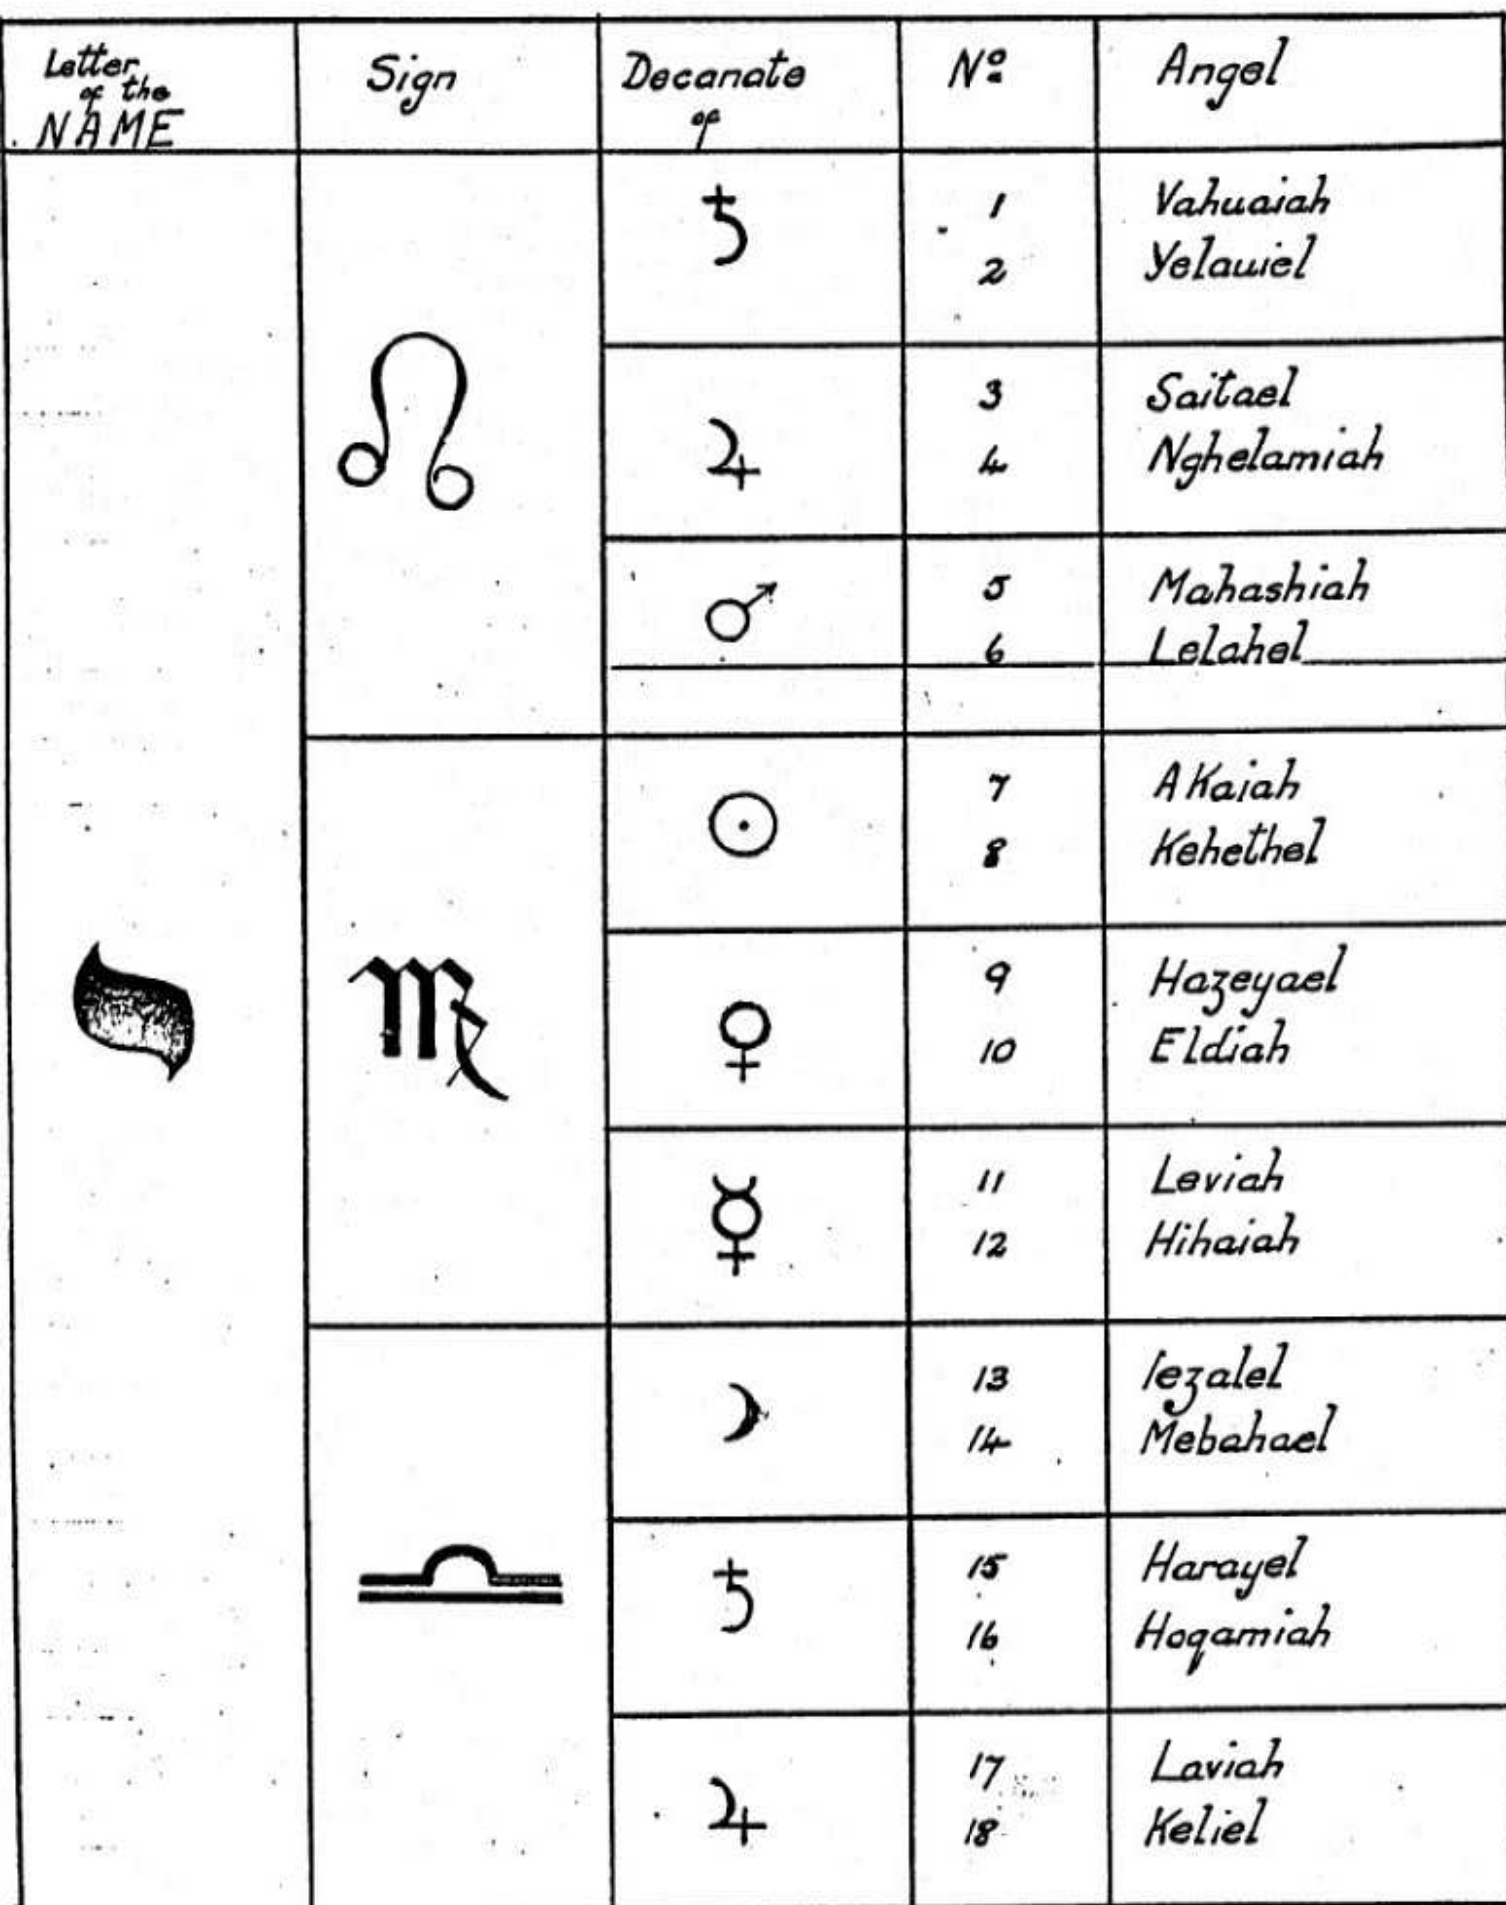 Letter of the NAME Sign Decanate of Nº Angel
♄ 1 Vahuaiah
2 Yelauiel
♌ ♃ 3 Saitael
4 Nghelamiah
♂ 5 Mahashiah
6 Lelahel
☉ 7 AKaiah
8 Kehethel
י ♍ ♀ 9 Hazeyael
10 Eldiah
☿ 11 Leviah
12 Hihaiah
☽ 13 Iezalel
14 Mebahael
♎ ♄ 15 Harayel
16 Hoqamiah
♃ 17 Laviah
18 Keliel